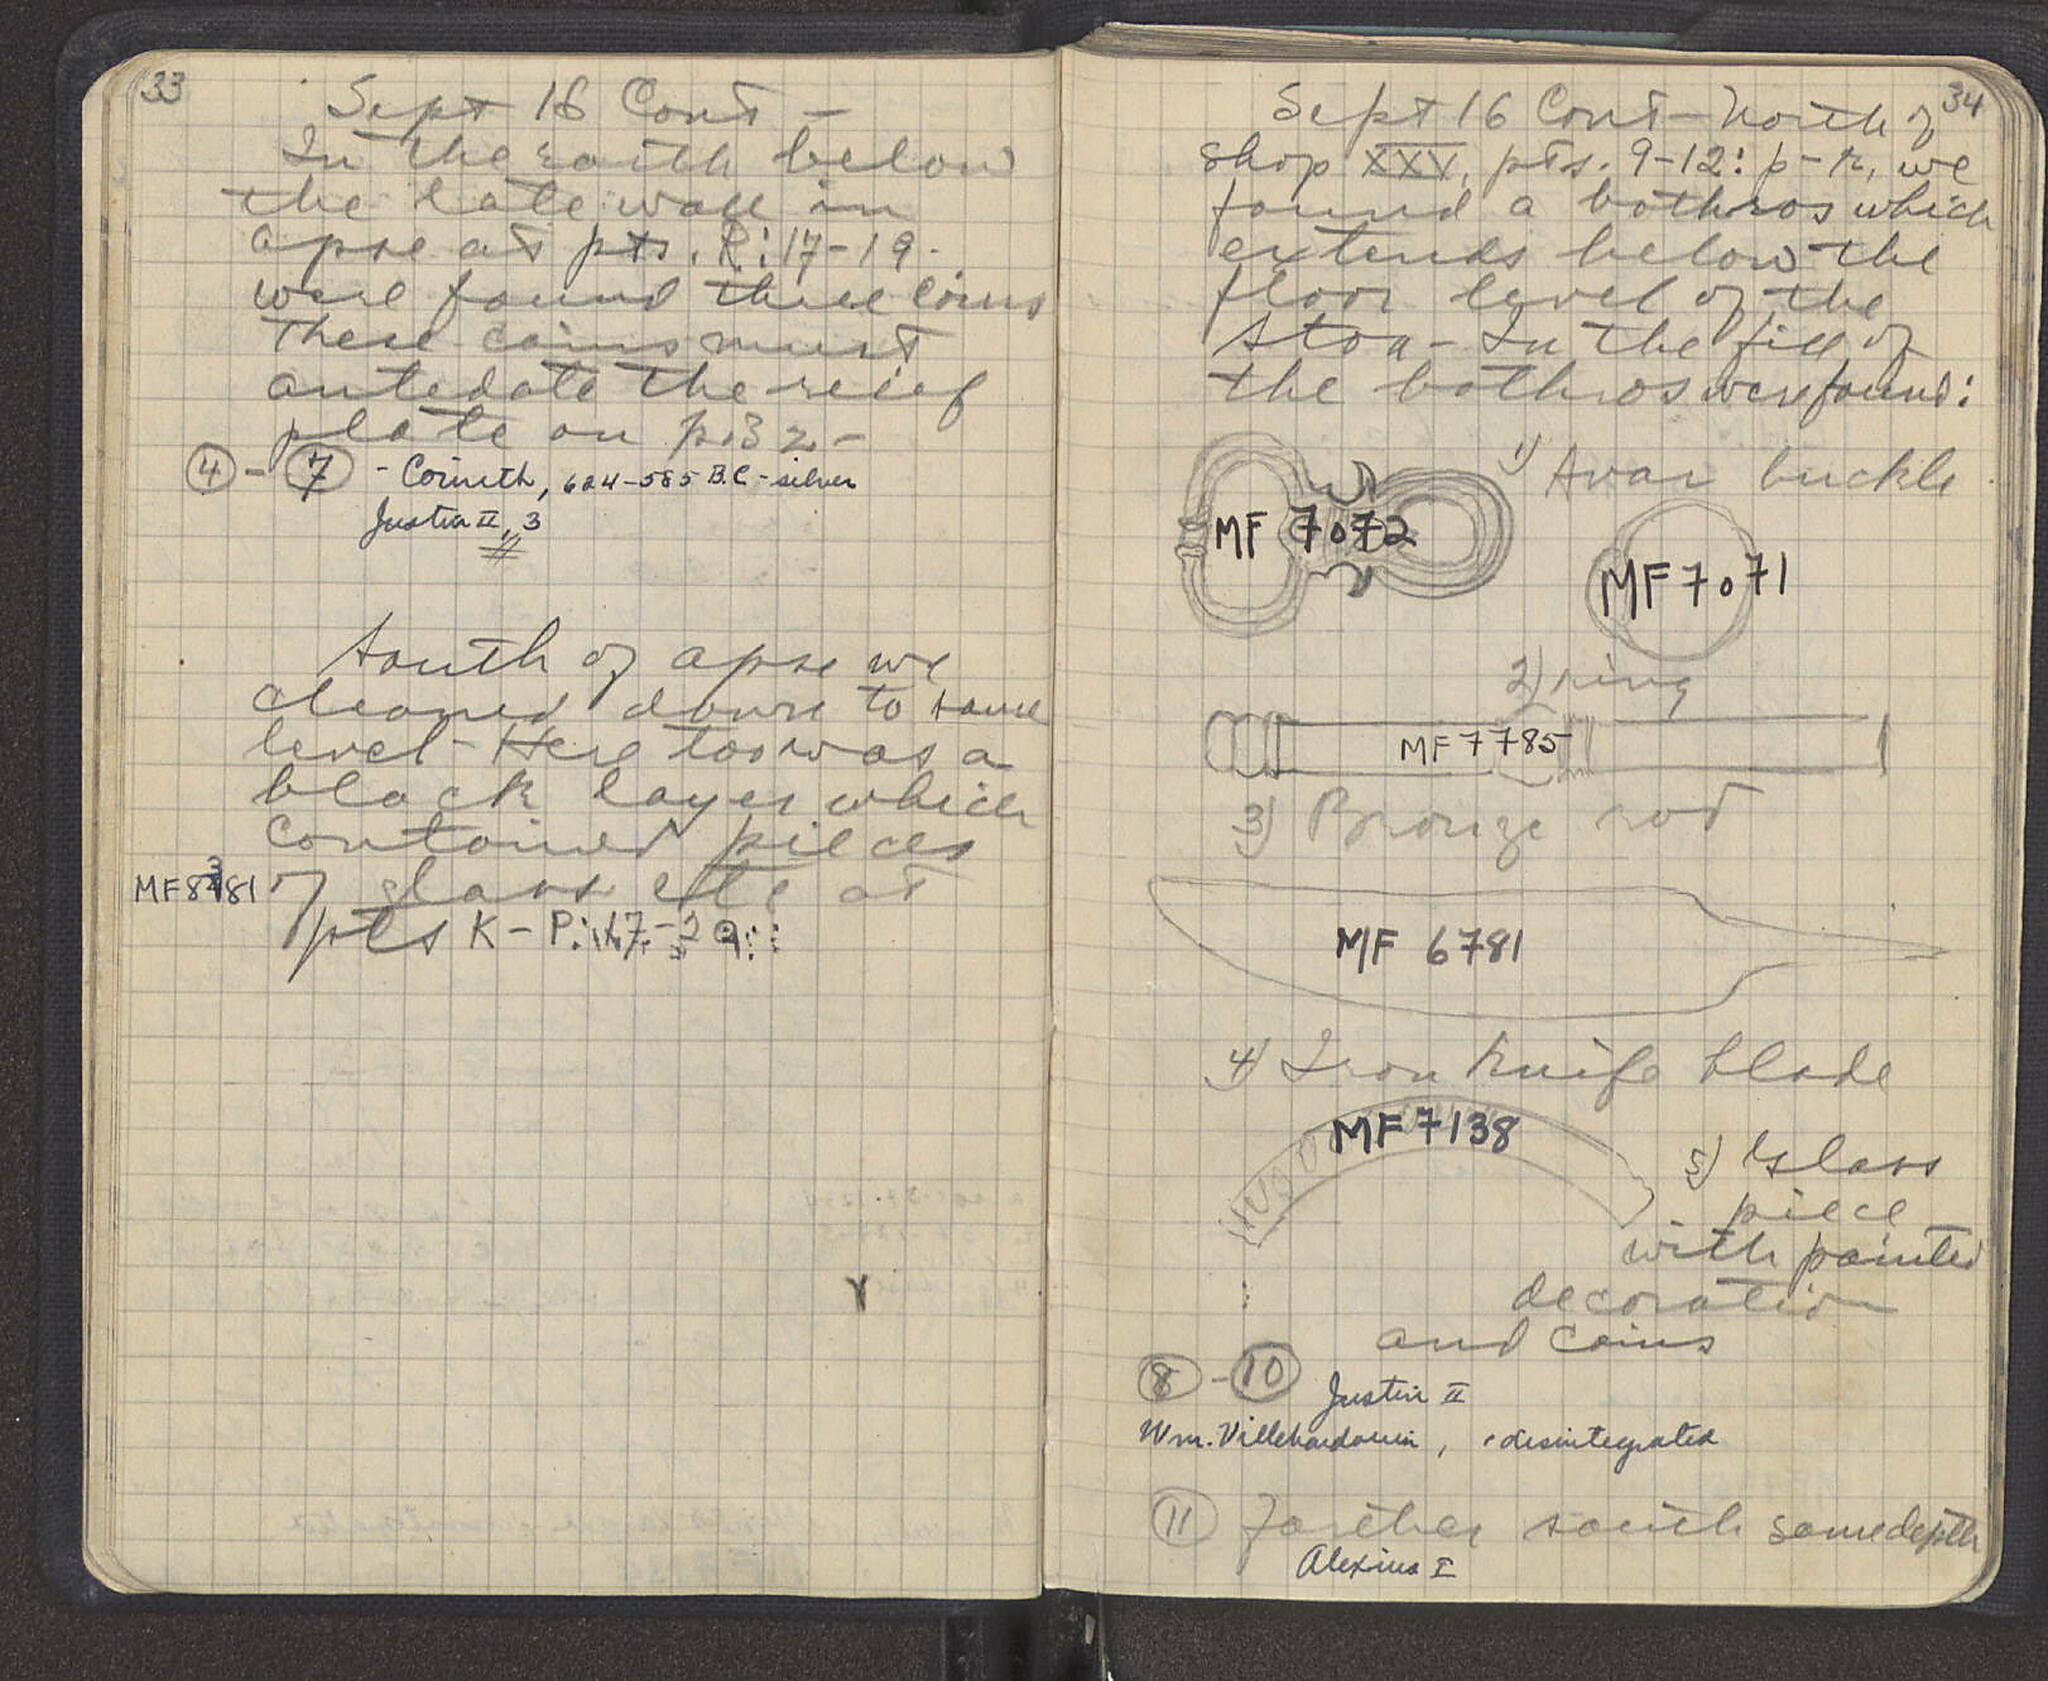 33
Sept 16 Cont -
In the earth below
the late wall in
apse at pts. R:17-19.
were found three coins
These coins must
antedate the relief
plate on p.32-
4 - 7 - Corinth, 624-585 B.C - silver
Justin II, 3
South of apse we
cleaned down to same
level - Here too was a
black layer which
contained pieces
MF8381 of glass etc at
pts K - P: 17-29:
34
Sept 16 Cont - North of
Shop XXV, pts. 9-12: p-r, we
found a bothros which
extends below the
floor level of the
Stoa - In the fill of
the bothros were found:
1) Avar buckle
MF 7072
MF 7071
2) ring
MF 7785
3) Bronze rod
MF 6781
4) Iron knife blade
MF 7138
5) Glass
piece
with painted
decoration
and coins
8 - 10 Justin II
Wm. Villehardouin, disintegrated
11 Farther south same depth
Alexius I